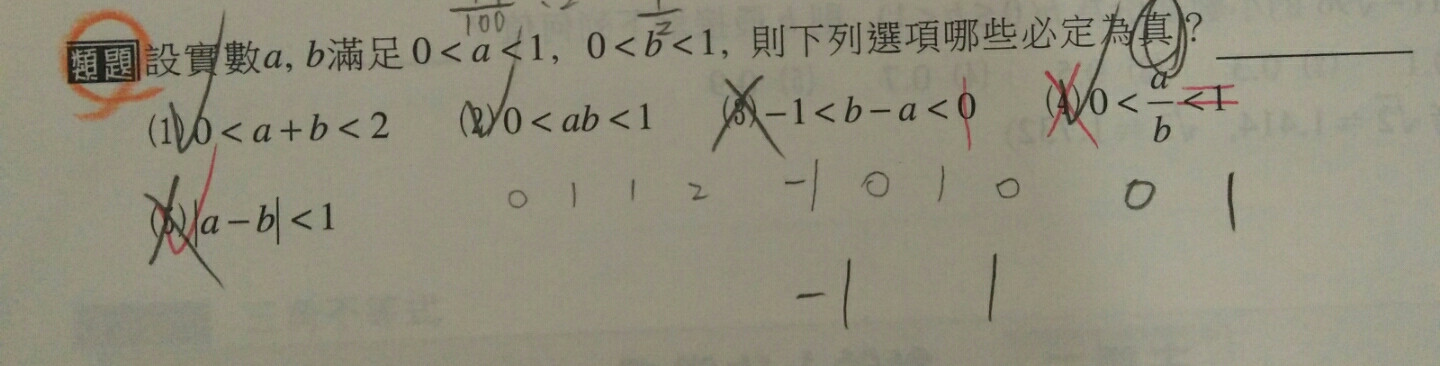 類題 設實數a, b滿足0<a<1, 0<b<1, 則下列選項哪些必定為真?
(1) 0<a+b<2 (2) 0<ab<1 (3) -1<b-a<0 (4) 0<a/b<1
(5) |a-b|<1
0 1 1 2 -1 0 1 0 0 1
-1 1